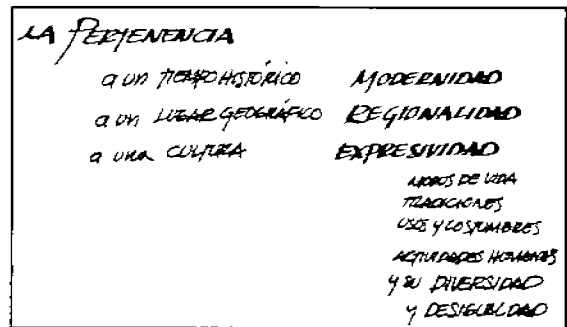 LA PERTENENCIA
a un TIEMPO HISTÓRICO MODERNIDAD
a un LUGAR GEOGRÁFICO REGIONALIDAD
a una CULTURA EXPRESIVIDAD
MODOS DE VIDA
TRADICIONES
USOS Y COSTUMBRES
ACTIVIDADES HUMANAS
Y SU DIVERSIDAD
Y DESIGUALDAD